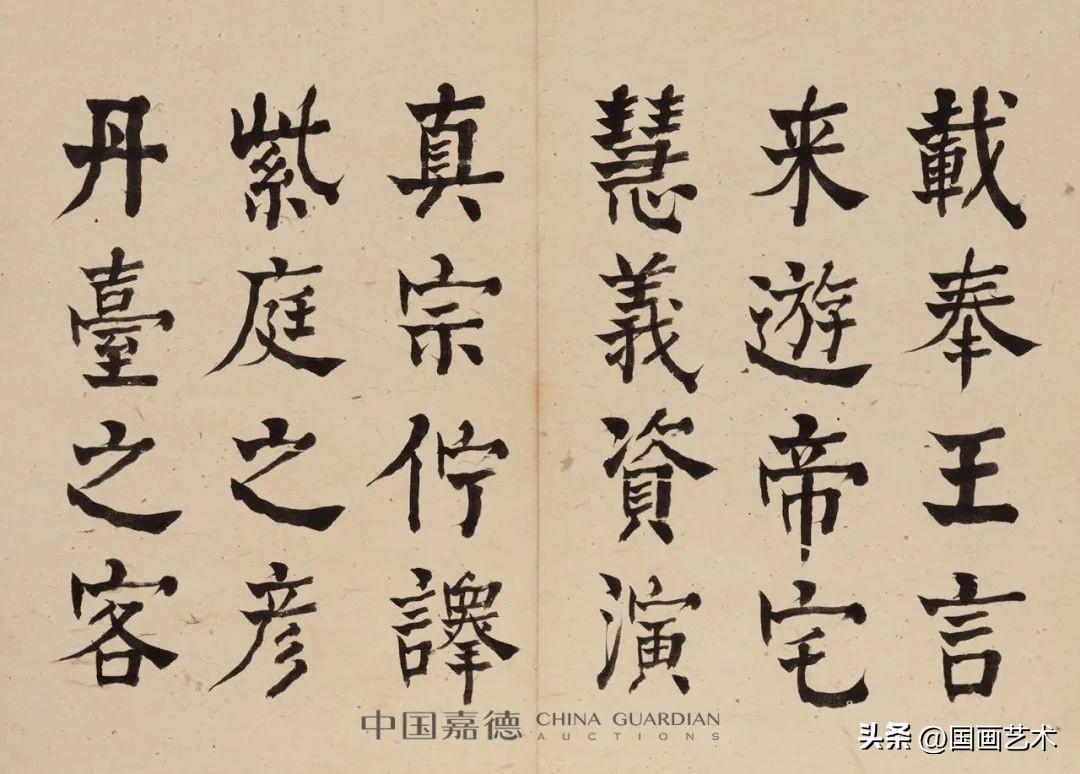 載奉王言
来遊帝宅
慧義資演
真宗佇譯
紫庭之彦
丹臺之客
中国嘉德 CHINA GUARDIAN
AUCTIONS
头条 @国画艺术